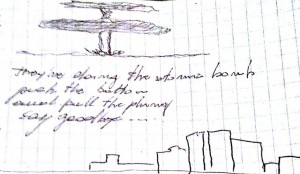 They're doing the atomic bomb
push the button
and pull the plug
say goodbye...